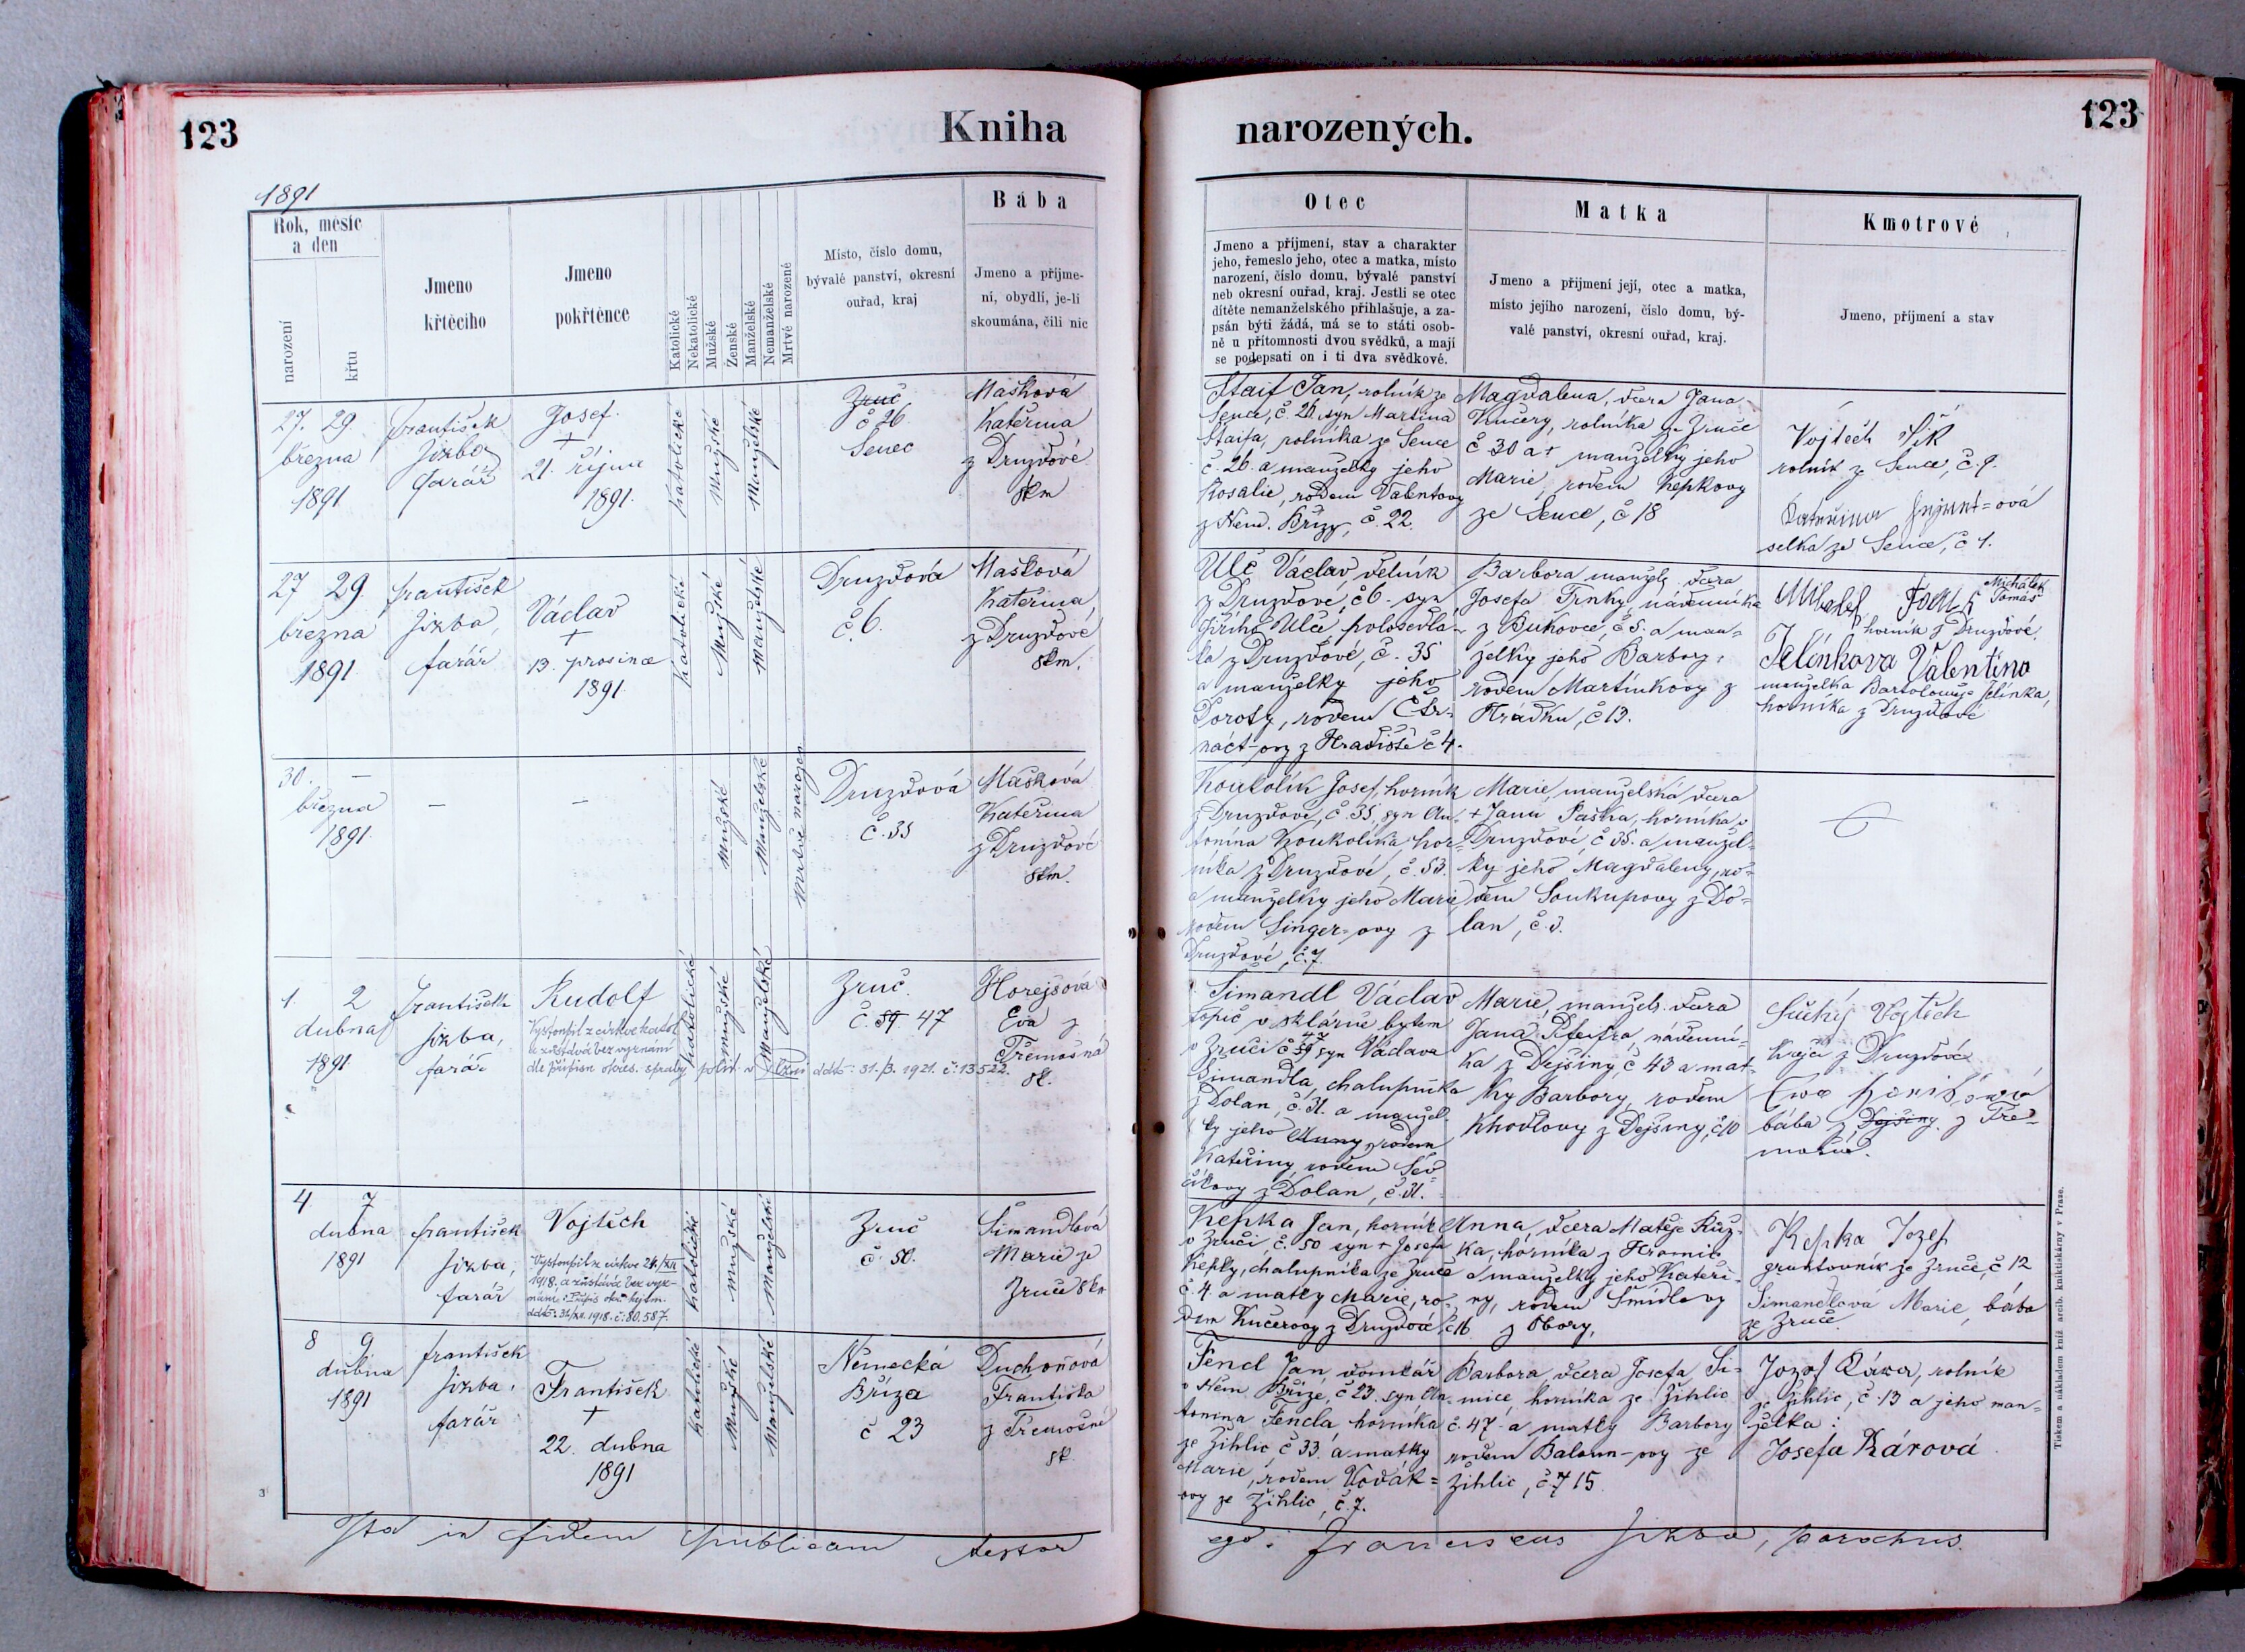 123
Kniha
narozených.
123
1891
Rok, měsíc
a den
narození
křtu
Jmeno
křtěcího
Jmeno
pokřtěnce
Katolické
Nekatolické
Mužské
Ženské
Manželské
Nemanželské
Mrtvě narozené
Místo, číslo domu,
bývalé panství, okresní
ouřad, kraj
Bába
Jmeno a příjme-
ní, obydlí, je-li
skoumána, čili nic
Otec
Jmeno a příjmení, stav a charakter
jeho, řemeslo jeho, otec a matka, místo
narození, číslo domu, bývalé panství
neb okresní ouřad, kraj. Jestli se otec
dítěte nemanželského přihlašuje, a za-
psán býti žádá, má se to státi osob-
ně u přítomnosti dvou svědků, a mají
se podepsati on i ti dva svědkové.
Matka
Jmeno a příjmení její, otec a matka,
místo jejího narození, číslo domu, bý-
valé panství, okresní ouřad, kraj.
Kmotrové
Jmeno, příjmení a stav
27. 29.
března
1891
František
Jizba
farář
Josef.
+
21. října
1891.
Katolické
Mužské
Manželské
Zruč
č 26
Senec
Mašková
Kateřina
z Druzdové
zkm
Staif Jan, rolník ze
Sence, č. 26, syn Martina
Staifa, rolníka ze Sence
č. 26. a manželky jeho
Rosalie, rodem Valentovy
z Něm. Břízy, č. 22.
Magdalena, dcera Jana
Kučery, rolníka ze Zruče
č 30 a + manželky jeho
Marie, rodem Kepkovy
ze Sence, č 18
Vojtěch Šik
rolník ze Sence, č. 9.
Kateřina
selka ze Sence, č 1.
27 29
března
1891
František
Jizba,
farář
Václav
+
13. prosince
1891.
Katolické
Mužské
Manželské
Druzdová
č. 6.
Mašková
Kateřina,
z Druzdové
zkm.
Ulč Václav, dělník
z Druzdové, č 6. syn
Jiřího Ulče, polosedlá-
ka z Druzdové, č. 35
a manželky jeho
Doroty, rodem Čtr-
náct-ovy z Hradiště č 4.
Barbora manžels. dcera
Josefa Trnky, nádeníka
z Bukovce, č 5. a man-
želky jeho Barbory,
rodem Martínkovy z
Hrádku, č 13.
Michálek
Tomáš
horník z Druzdové.
Jelínkova Valentina
manželka Bartoloměje Jelínka,
horníka z Druzdové
30. —
března
1891.
—
—
Mužské
Manželské
Mrtvě narozen
Druzdová
č. 35
Mašková
Kateřina
z Druzdové
zkm.
Koukolík Josef, horník
z Druzdové, č. 35, syn An-
tonína Koukolíka hor-
níka z Druzdové, č. 53.
a manželky jeho Marie,
rodem Singer-ovy z
Druzdové, č. 7.
Marie, manželská dcera
+ Jana Paška, horníka v
Druzdové, č 35. a manžel-
ky jeho Magdaleny, ro-
dem Soukupovy z Do-
lan, č. 3.
1. 2
dubna
1891.
František
Jizba,
farář
Rudolf
Vystoupil z církve katol.
a zůstává bez vyznání
dle přípisu okres. správy polit. v Plzni ddto 31./3. 1921. č. 13522.
Katolické
mužské
Manželské
Zruč.
č. 59 47
Horejšová
Eva z
Třemošná
zk.
Šimandl Václav
topič v sklárně bytem
v Zruči č 59 syn Václava
Šimandla, chalupníka
z Dolan, č. 31. a manžel-
ky jeho Anny, rodem
Kateřiny rodem Šev-
číkovy z Dolan, č. 31.
Marie, manžels. dcera
Jana Pteifra, nádenní-
ka z Dejšiny, č 43 a mat-
ky Barbory, rodem
Khodlovy z Dejšiny, č. 10
Suchý Vojtěch
krejčí z Druzdové
Ewa
bába z Dejšiny. z Tře-
mošné.
4. 7
dubna
1891
František
Jizba,
farář
Vojtěch
Vystoupil z církve 24/XII
1918. a zůstává bez vyz-
nání. Přípis okr. hejtm.
ddto 31/XII. 1918. č. 80.587.
Katolické
Mužské
Manželské
Zruč
č. 50.
Šimandlová
Marie ze
Zruče zkm
Kepka Jan, horník
v Zruči, č. 50 syn + Josefa
Kepky, chalupníka ze Zruče
č. 4. a matky Marie, ro-
dem Kučerovy z Druzdové, č 16
Anna, dcera Matěje Růž-
ka, horníka z Hromic
a manželky jeho Kateři-
ny, rodem Šmídlovy
z Obory,
Kepka Jozef
gruntovník ze Zruče, č 12
Šimandlová Marie, bába
ze Zruče.
8 9
dubna
1891
František
Jizba,
farář
František
+
22. dubna
1891
Katolické
Mužské
Manželské
Německá
Bříza
č 23
Duchoňová
Františka
z Třemošné
zk
Fencl Jan, domkář
v Něm. Bříze, č 23. syn An-
tonína Fencla horníka
ze Žihlic č 33. a matky
Marie, rodem Vovák-
ovy ze Žihlic, č. 7.
Barbora, dcera Josefa Ši-
mice, horníka ze Žihlic
č. 47. a matky Barbory
rodem Baloun-ovy ze
Žihlic, č 7 15
Jozef Kára, rolník
ze Žihlic, č. 13 a jeho man-
želka:
Josefa Kárová
3
Ita in fidem publicam testor
ego: Franciscus Jizba, parochus.
Tiskem a nákladem kníž. arcib. knihtiskárny v Praze.